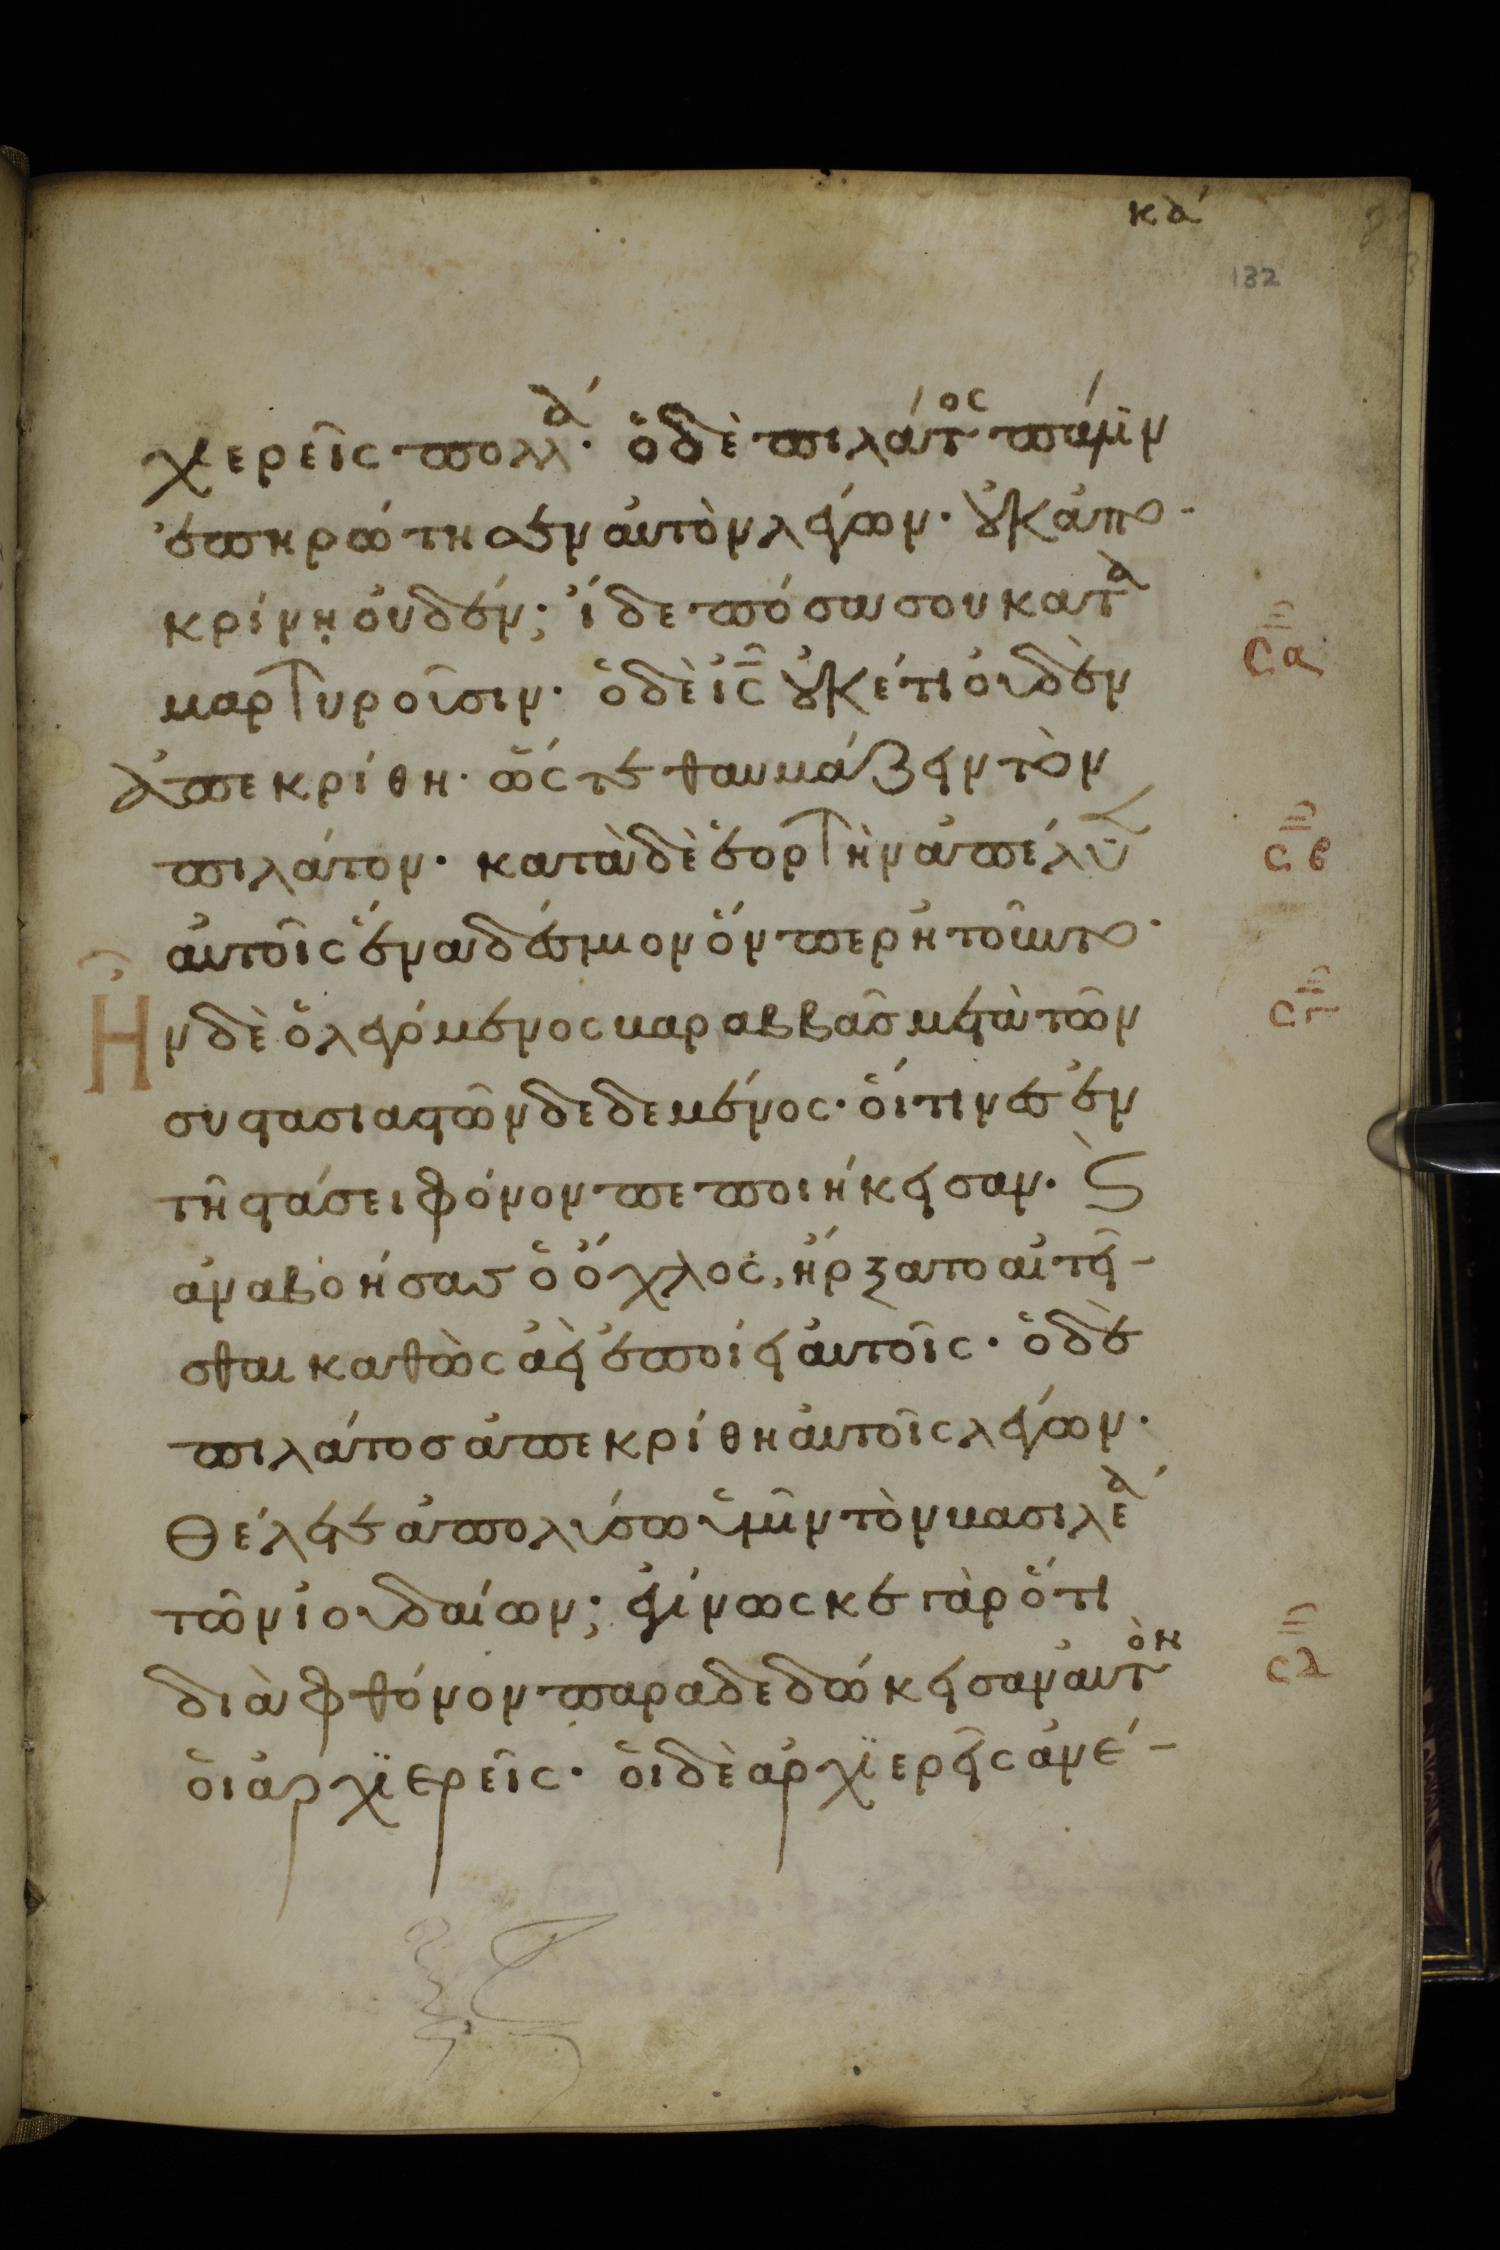 κδ'
132
χερεῖς πολλά· ὁ δὲ πιλάτος πάλιν
ἐπηρώτησεν αὐτὸν λέγων· οὐκ ἀπο-
κρίνῃ οὐδέν; ἴδε πόσα σου κατα
μαρτυροῦσιν· ὁ δὲ ις οὐκέτι οὐδὲν
ἀπεκρίθη· ὥστε θαυμάζειν τὸν
πιλάτον· κατὰ δὲ ἑορτὴν ἀπέλυεν
αὐτοῖς ἕνα δέσμιον ὅνπερ ἠτοῦντο·
Ἦν δὲ ὁ λεγόμενος βαραββᾶς μετὰ τῶν
συστασιαστῶν δεδεμένος· οἵτινες ἐν
τῇ στάσει φόνον πεποιήκεισαν· καὶ
ἀναβοήσας ὁ ὄχλος, ἤρξατο αἰτεῖ-
σθαι καθὼς ἀεὶ ἐποίει αὐτοῖς· ὁ δὲ
πιλάτος ἀπεκρίθη αὐτοῖς λέγων·
θέλετε ἀπολύσω ὑμῖν τὸν βασιλέα
τῶν ἰουδαίων; ἐγίνωσκε γὰρ ὅτι
διὰ φθόνον παραδεδώκεισαν αὐτὸν
οἱ ἀρχϊερεῖς· οἱ δὲ ἀρχϊερεῖς ἀνέ-
σα
σβ
σγ
σδ